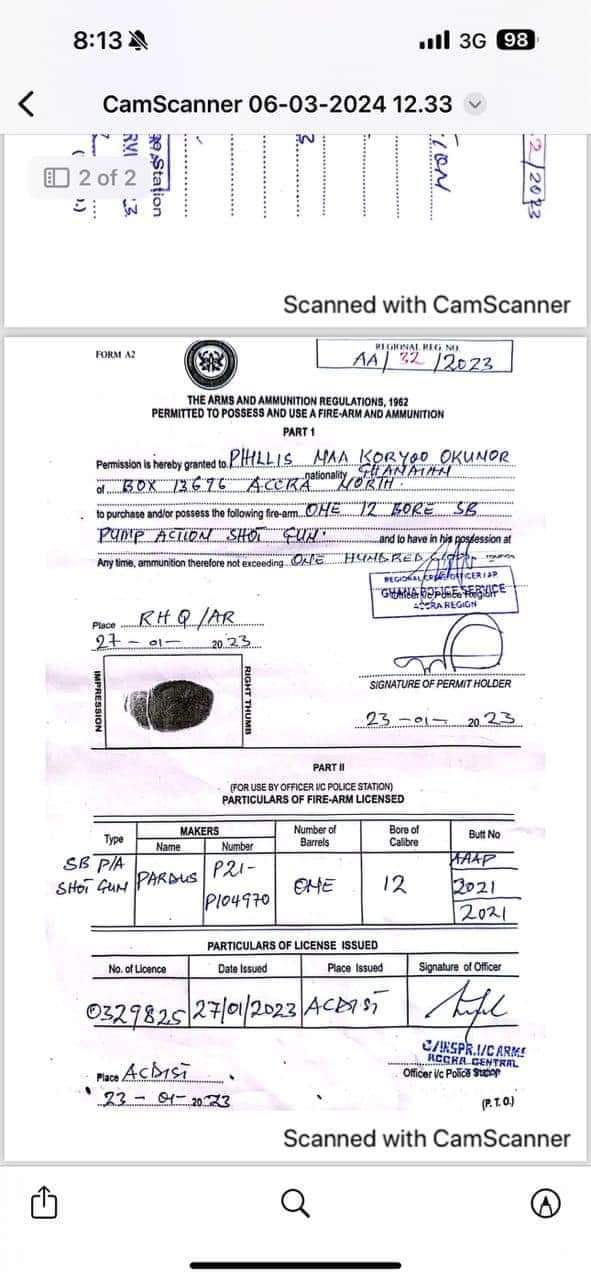 8:13
3G 98
CamScanner 06-03-2024 12.33
2 of 2
Station
2/2023
Scanned with CamScanner
FORM A2
REGIONAL REG. NO.
AA/ 32 /2023
THE ARMS AND AMMUNITION REGULATIONS, 1962
PERMITTED TO POSSESS AND USE A FIRE-ARM AND AMMUNITION
PART 1
Permission is hereby granted to PHLLIS NAA KORYOO OKUNOR
of BOX 13696 ACCRA NORTH. nationality GHANAIAN
to purchase and/or possess the following fire-arm ONE 12 BORE SB
PUMP ACTION SHOT GUN. and to have in his possession at
Any time, ammunition therefore not exceeding ONE HUNDRED
REGIONAL CRIME OFFICER/AP
GHANA POLICE SERVICE
ACCRA REGION
Place RHQ/AR
27-01- 2023
IMPRESSION
RIGHT THUMB
SIGNATURE OF PERMIT HOLDER
23-01- 2023
PART II
(FOR USE BY OFFICER I/C POLICE STATION)
PARTICULARS OF FIRE-ARM LICENSED
Type MAKERS Name Number Number of Barrels Bore of Calibre Butt No
SB P/A SHOT GUN PARDUS P21-P104970 ONE 12 AAAP 2021 2021
PARTICULARS OF LICENSE ISSUED
No. of Licence Date Issued Place Issued Signature of Officer
0329825 27/01/2023 ACDIST
C/INSPR.I/C ARMS
ACCRA CENTRAL
Place ACDIST
Officer i/c Police Station
23-01-2023
(P.T.O.)
Scanned with CamScanner